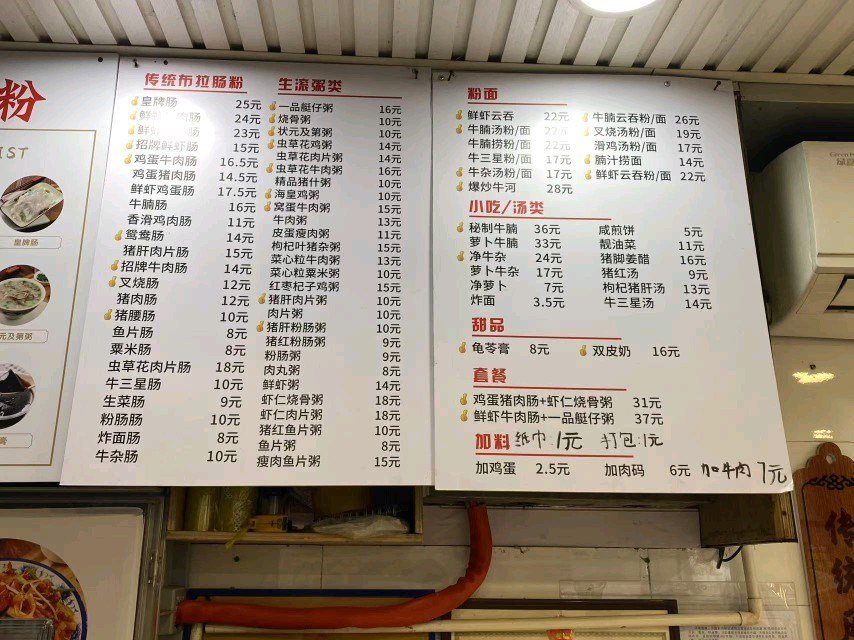 粉
IST
皇牌肠
元及第粥
膏
传统布拉肠粉
皇牌肠 25元
鲜虾 肉肠 24元
鲜虾 肠 23元
招牌鲜虾肠 15元
鸡蛋牛肉肠 16.5元
鸡蛋猪肉肠 14.5元
鲜虾鸡蛋肠 17.5元
牛腩肠 16元
香滑鸡肉肠 11元
鸳鸯肠 14元
猪肝肉片肠 15元
招牌牛肉肠 14元
叉烧肠 12元
猪肉肠 12元
猪腰肠 10元
鱼片肠 8元
粟米肠 8元
虫草花肉片肠 18元
牛三星肠 10元
生菜肠 9元
粉肠肠 10元
炸面肠 8元
牛杂肠 10元
生滚粥类
一品艇仔粥 16元
烧骨粥 10元
状元及第粥 10元
虫草花鸡粥 14元
虫草花肉片粥 14元
虫草花牛肉粥 16元
精品猪什粥 10元
海皇鸡粥 10元
窝蛋牛肉粥 15元
牛肉粥 13元
皮蛋瘦肉粥 11元
枸杞叶猪杂粥 15元
菜心粒牛肉粥 13元
菜心粒粟米粥 10元
红枣杞子鸡粥 15元
猪肝肉片粥 10元
肉片粥 10元
猪肝粉肠粥 10元
猪红粉肠粥 9元
粉肠粥 9元
肉丸粥 8元
鲜虾粥 14元
虾仁烧骨粥 18元
虾仁肉片粥 18元
猪红鱼片粥 10元
鱼片粥 8元
瘦肉鱼片粥 15元
粉面
鲜虾云吞 22元 牛腩云吞粉/面 26元
牛腩汤粉/面 22元 叉烧汤粉/面 19元
牛腩捞粉/面 22元 滑鸡汤粉/面 17元
牛三星粉/面 17元 腩汁捞面 14元
牛杂汤粉/面 17元 鲜虾云吞粉/面 22元
爆炒牛河 28元
小吃/汤类
秘制牛腩 36元 咸煎饼 5元
萝卜牛腩 33元 靓油菜 11元
净牛杂 24元 猪脚姜醋 16元
萝卜牛杂 17元 猪红汤 9元
净萝卜 7元 枸杞猪肝汤 13元
炸面 3.5元 牛三星汤 14元
甜品
龟苓膏 8元 双皮奶 16元
套餐
鸡蛋猪肉肠+虾仁烧骨粥 31元
鲜虾牛肉肠+一品艇仔粥 37元
加料 纸巾:1元 打包:1元
加鸡蛋 2.5元 加肉码 6元 加牛肉 7元
传统